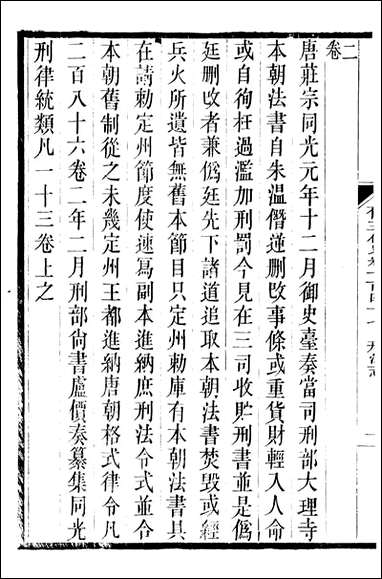 二
卷
唐莊宗同光元年十二月御史臺奏當司刑部大理寺
本朝法書自朱溫僭逆刪改事條或重貨財輕入人命
或自徇枉過濫加刑罰今見在三司收貯刑書並是僞
廷刪改者兼僞廷先下諸道追取本朝法書焚毀或經
兵火所遺皆無舊本節目只定州勅庫有本朝法書具
在請勅定州節度使速寫副本進納庶刑法令式並合
本朝舊制從之未幾定州王都進納唐朝格式律令凡
二百八十六卷二年二月刑部尚書盧價奏纂集同光
刑律統類凡一十三卷上之